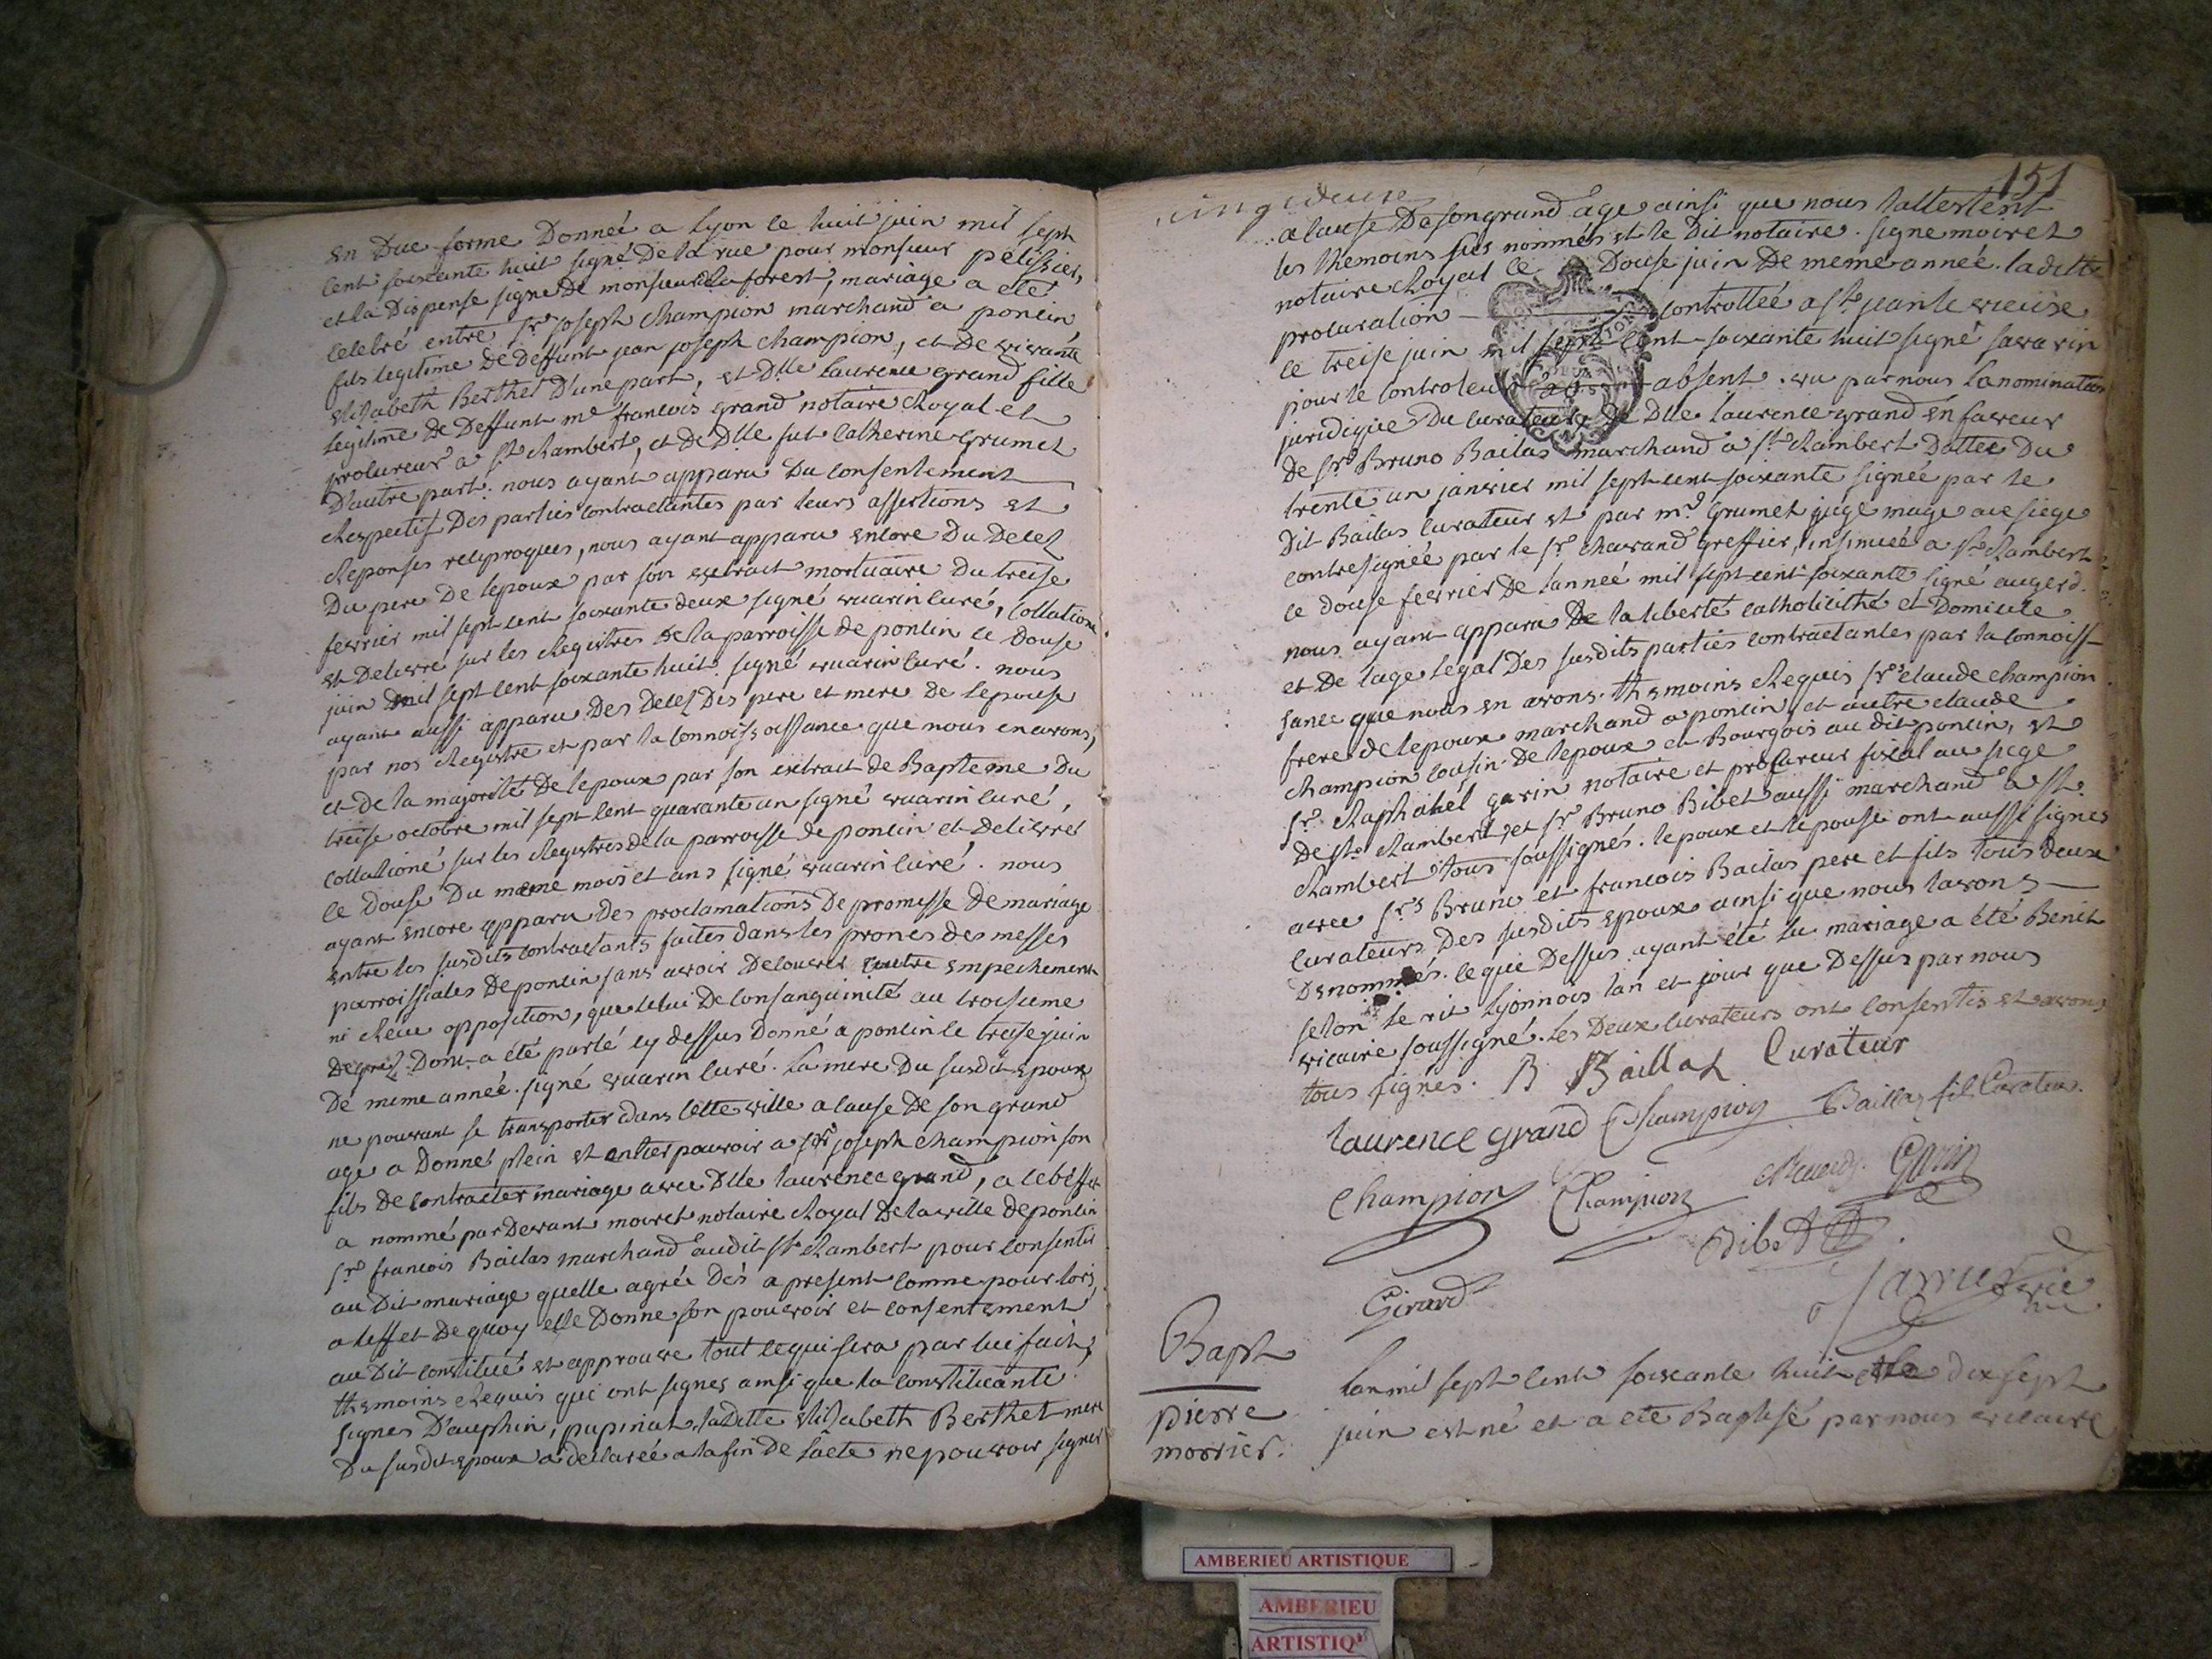 en Due forme Donneé a Lyon le huit juin mil sept
cent soixante huit signé De la rue pour monsieur pelissier,
et la Dispense signe De monsieur La forest, mariage a eté
celebré entre Sr joseph champion marchand a poncin
fils legitime de Deffunt jean joseph champion, et De vivante
elisabeth Berthet D'une part, et Dlle laurence grand fille
legitime De Deffunt me francois grand notaire Royal et
procureur a St Rambert, et de Dlle fut catherine grumet
D'autre part. nous ayant apparu Du consentement
Respectif Des parties contractantes par leurs assertions et
Reponses reciproques, nous ayant apparu encore Du Decez
Du pere De lepoux par son extrait mortuaire Du treise
fevrier mil sept cent soixante deux signé vuarin curé, collationé
et Delivré sur les Registres de la parroisse de poncin le Douse
juin mil sept cent soixante huit signé vuarin curé. nous
ayant aussi apparu Des Decez Des pere et mere De lepouse
par nos Registre et par la connoissoissance que nous en avons,
et de la majorité De lepoux par son extrait de Bapteme Du
treise octobre mil sept cent quarante un signé vuarin curé,
collationé sur les Registres de la parroisse de poncin et Delivré
le Douse Du meme mois et ans signé vuarin curé. nous
ayant encore apparu Des proclamations De promesse De mariage
entre les susdits contractants faites dans les prones des messes
parroissiales De poncin sans avoir Decouvert autre empechement
ni Recu opposition, que celui De consanguinité au troisieme
Degrez Dont a été parlé cy dessus Donné a poncin le treise juin
De meme année. signé vuarin curé. La mere Du susdit epoux
ne pouvant se transporter dans cette ville a cause De son grand
age a Donné plein et entier pouvoir a Sr joseph champion son
fils De contracter mariage avec Dlle laurence grand, a cet effet
a nommé par Devant moiret notaire Royal De la ville de poncin
Sr francois Bailas marchand audit St Rambert pour consentir
au Dit mariage quelle agrée Dès a present comme pour lors,
a leffet De quoy elle Donne son pouvoir et consentement
au Dit constitué et approuve tout ce qui sera par lui fait,
themoins Requis qui ont signes ainsi que la constituante
signes Dauphin, papinat, la Ditte elisabeth Berthet mere
Du susdit epoux a declarée a la fin De lacte ne pouvoir signer
151
a cause De son grand âge ainsi que nous l'attestent
les themoins sus nommés et le Dit notaire. signe moiret
notaire Royal le Douse juin De meme année. la ditte
procuration controllée a St jean le vieux
le treise juin mil sept cent soixante huit signé savarin
pour le controleur absent. vu par nous la nomination
juridique Du curateur De Dlle laurence grand en faveur
De Sr Bruno Bailas marchand a St Rambert Dattée Du
trente un janvier mil sept cent soixante signée par le
Dit Bailas curateur et par mr grumet juge mage au siege
contresignée par le Sr chavand greffier, insinuée a St Rambert
le douse fevrier De l'anneé mil sept cent soixante signé augerd.
nous ayant apparu De la liberté catholicité et Domicile
et De l'age legal Des susdits parties contractantes par la connoiss-
sance que nous en avons. themoins Requis Srs claude champion
frere de lepoux marchand a poncin, et autre claude
champion cousin De lepoux et Bourgois au dit poncin, et
Sr Raphahel garin notaire et procureur fiscal au siege
De St Rambert, et Sr Bruno Bibet aussi marchand a St
Rambert tous soussignés. lepoux et lepouse ont aussi signés
avec Srs Bruno et francois Bailas pere et fils tous deux
curateurs Des susdits epoux ainsi que nous lavons
Denommés. ce qui Dessus ayant été lu mariage a été Benit
selon le rit Lyonnois lan et jour que Dessus par nous
vicaire soussigné. Les Deux curateurs ont consentis et avons
tous signés. B Baillas Curateur
laurence grand Champion Baillas fils Curateur.
Champion Champion Garin
Bibet
Girard Jarrus vic
Bapt
pierre
morrier.
Lan mil sept cent soixante huit le dix sept
juin est né et a eté Baptisé par nous vicaire
AMBERIEU ARTISTIQUE
AMBERIEU
ARTISTIQ